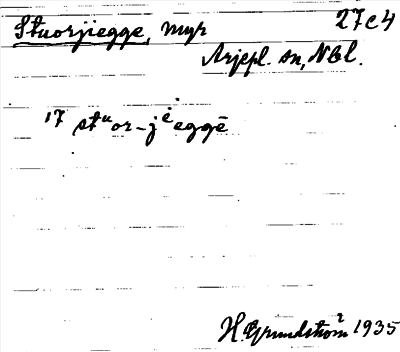 Stuorjiegge, myr 27c4
Arjepl. sn, Nbl.
17 stᵘor-jⁱeggē
H. Grundström 1935